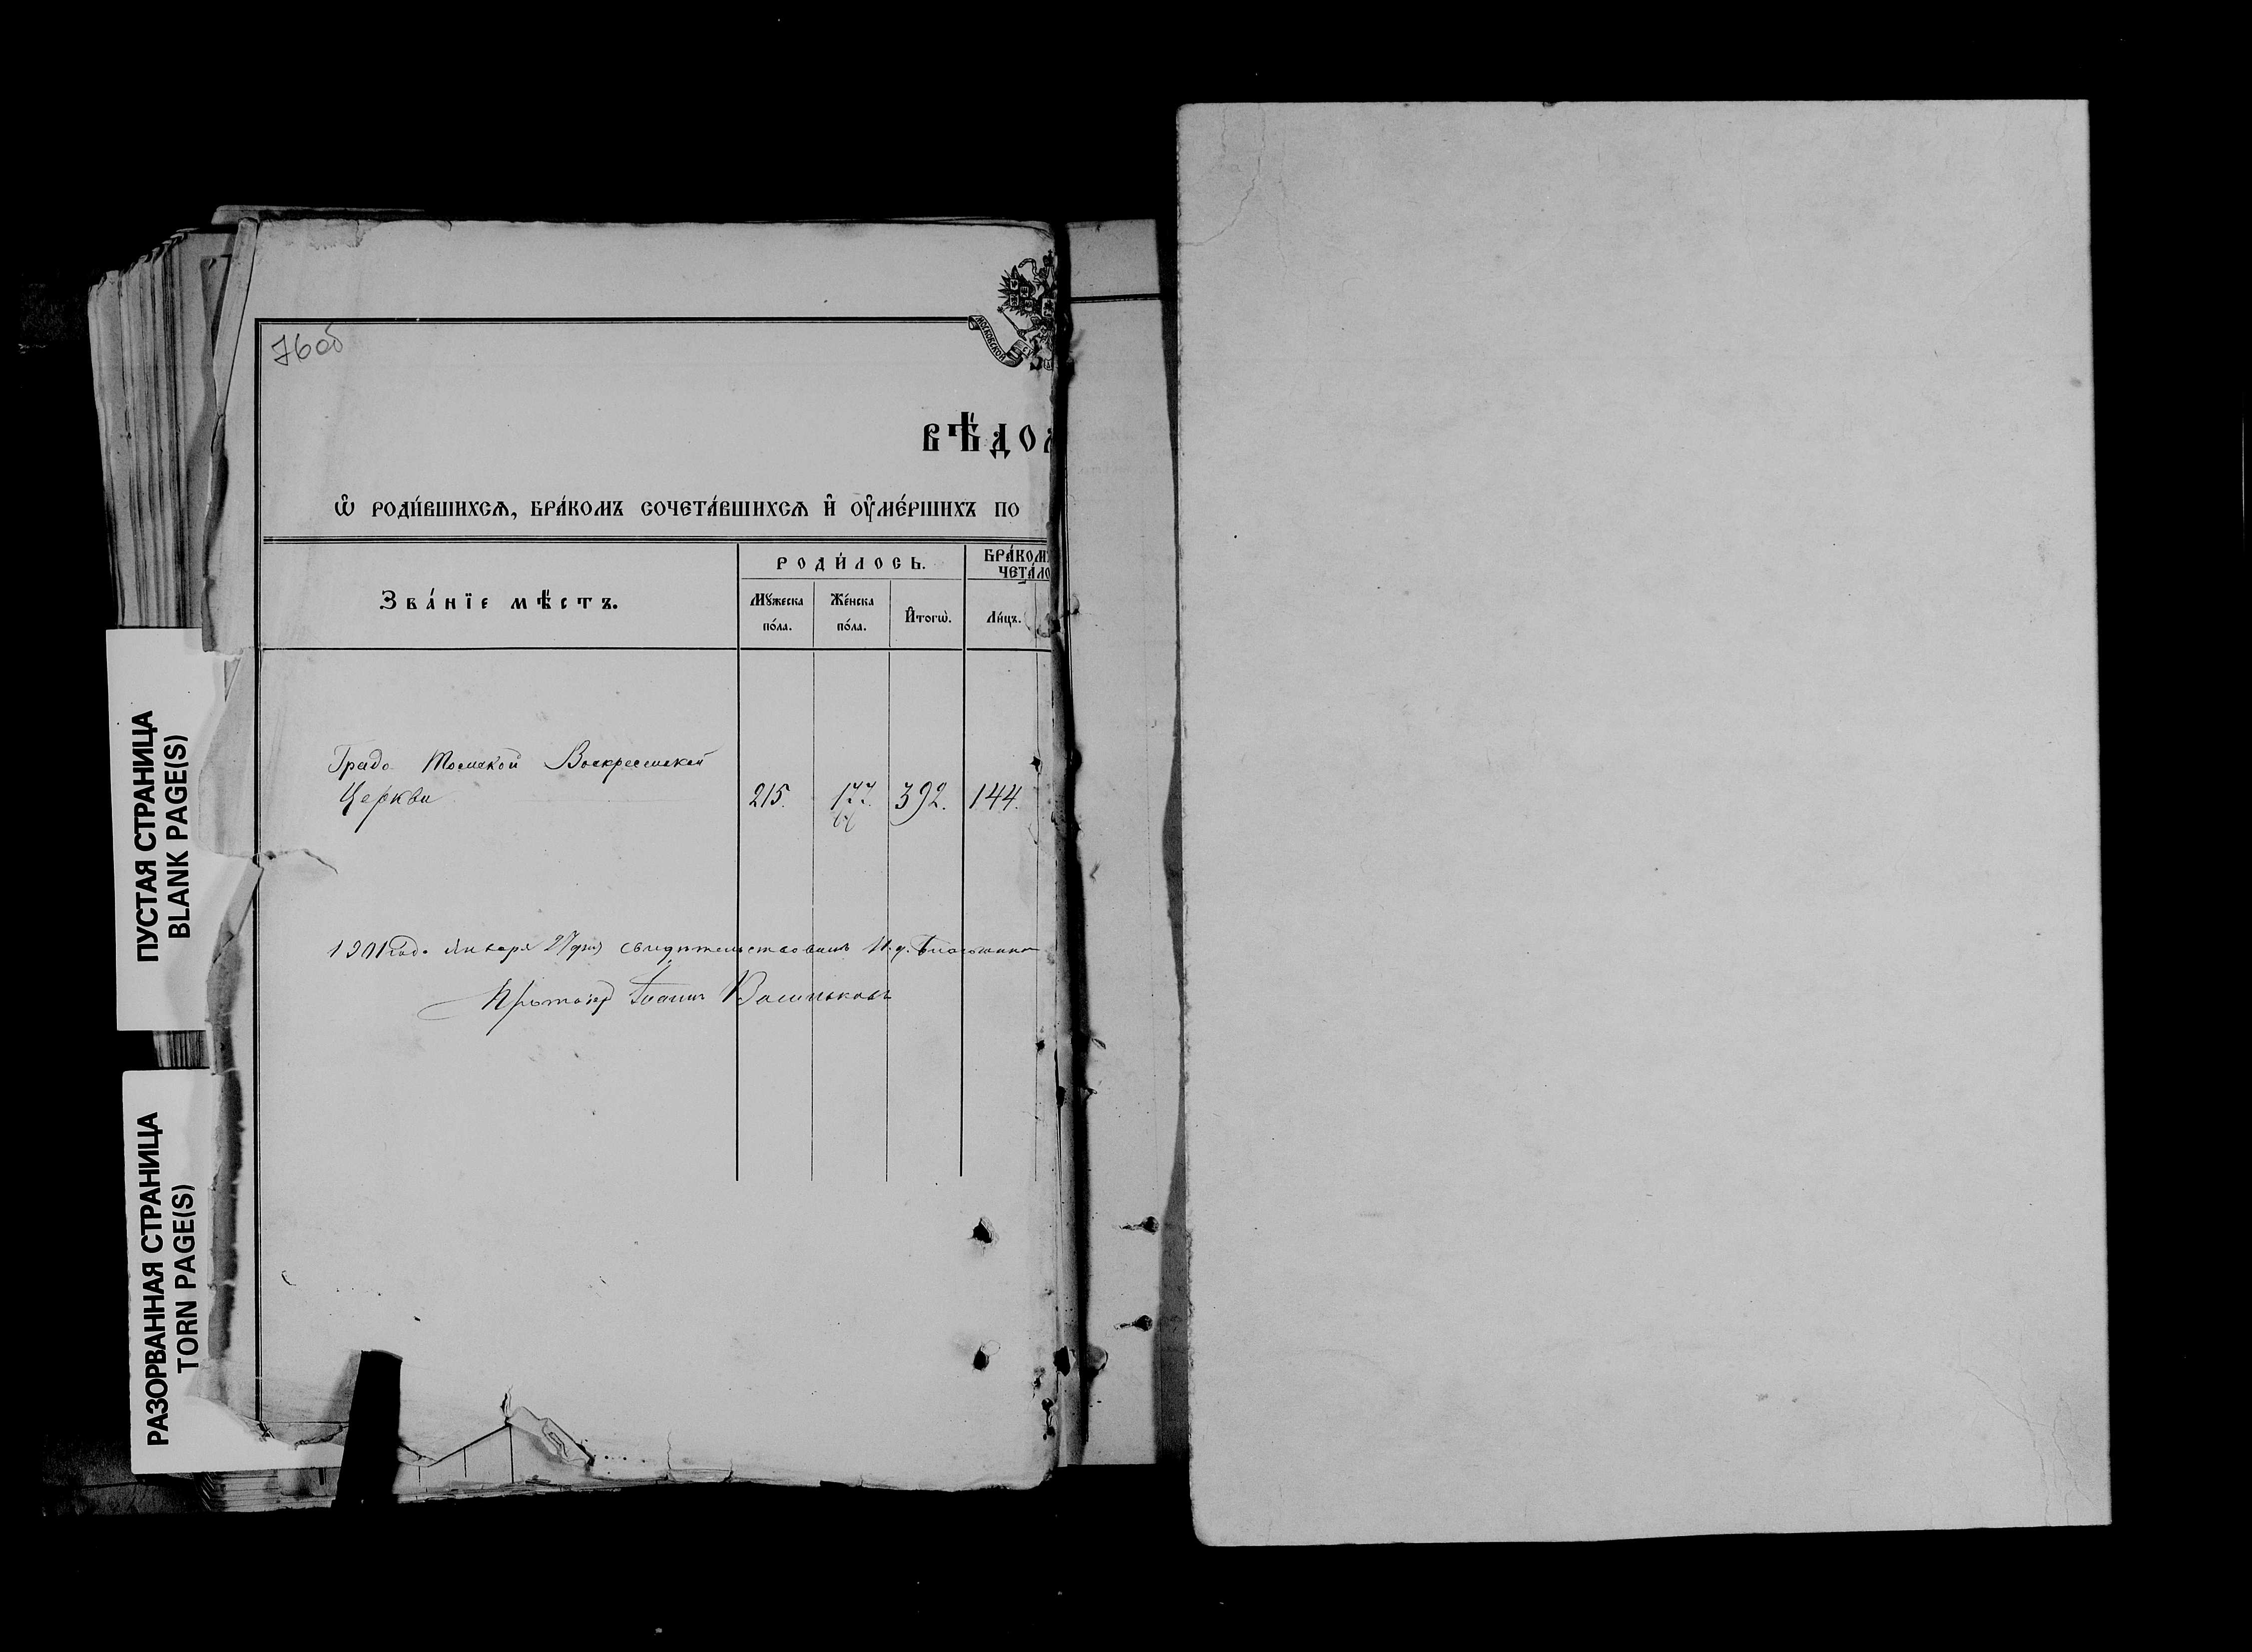 76об
МОСКОВСКОЙ
ВѢДО
Ѡ҆ РОДИ́ВШИХСѦ, БРА́КОМЪ СОЧЕТА́ВШИХСѦ И҆ ОУ҆МЕ́РШИХЪ ПО
Зва́нїе мѣ́стъ.
РОДИ́ЛОСЬ.
БРА́КОМ
ЧЕТА́ЛО
Мꙋ́жеска по́ла.
Же́нска по́ла.
И҆тогѡ̀.
Ли́цъ.
Градо Томской Воскресенской
Церкви
215. 177. 392. 144.
1901 года Января 27 дня свидѣтельствовалъ И.д. Благочиннаго
Протоіер Іоаннъ Васильковъ
ПУСТАЯ СТРАНИЦА
BLANK PAGE(S)
РАЗОРВАННАЯ СТРАНИЦА
TORN PAGE(S)